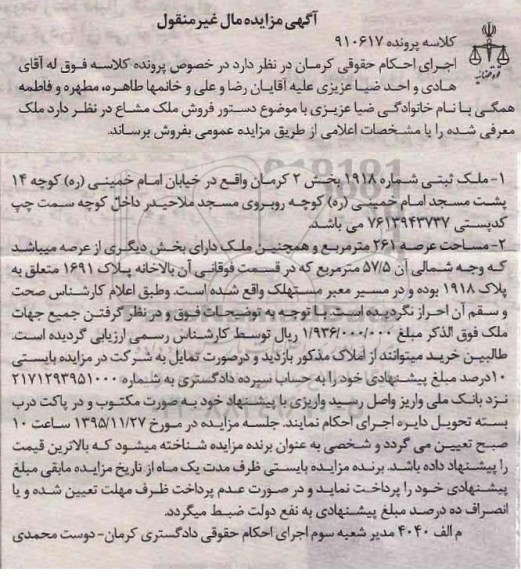 آگهی مزایده مال غیر منقول
کلاسه پرونده ۹۱۰۶۱۷
اجرای احکام حقوقی کرمان در نظر دارد در خصوص پرونده کلاسه فوق له آقای
هادی و احد ضیا عزیزی علیه آقایان رضا و علی و خانمها طاهره، مطهره و فاطمه
همگی با نام خانوادگی ضیا عزیزی با موضوع دستور فروش ملک مشاع در نظر دارد ملک
معرفی شده را با مشخصات اعلامی از طریق مزایده عمومی بفروش برساند.
۱- ملک ثبتی شماره ۱۹۱۸ بخش ۲ کرمان واقع در خیابان امام خمینی (ره) کوچه ۱۴
پشت مسجد امام خمینی (ره) کوچه روبروی مسجد ملاحیدر داخل کوچه سمت چپ
کدپستی ۷۶۱۳۹۴۳۷۳۷ می باشد.
۲- مساحت عرصه ۲۶۱ مترمربع و همچنین ملک دارای بخش دیگری از عرصه میباشد
که وجه شمالی آن ۵۷/۵ مترمربع که در قسمت فوقانی آن بالاخانه پلاک ۱۶۹۱ متعلق به
پلاک ۱۹۱۸ بوده و در مسیر معبر مستهلک واقع شده است. وطبق اعلام کارشناس صحت
و سقم آن احراز نگردیده است. با توجه به توضیحات فوق و در نظر گرفتن جمیع جهات
ملک فوق الذکر مبلغ ۱/۹۳۶/۰۰۰/۰۰۰ ریال توسط کارشناس رسمی ارزیابی گردیده است.
طالبین خرید میتوانند از املاک مذکور بازدید و درصورت تمایل به شرکت در مزایده بایستی
۱۰درصد مبلغ پیشنهادی خود را به حساب سپرده دادگستری به شماره ۲۱۷۱۲۹۳۹۵۱۰۰۰
نزد بانک ملی واریز واصل رسید واریزی با پیشنهاد خود به صورت مکتوب و در پاکت درب
بسته تحویل دایره اجرای احکام نمایند. جلسه مزایده در مورخ ۱۳۹۵/۱۱/۲۷ ساعت ۱۰
صبح تعیین می گردد و شخصی به عنوان برنده مزایده شناخته میشود که بالاترین قیمت
را پیشنهاد داده باشد. برنده مزایده بایستی ظرف مدت یک ماه از تاریخ مزایده مابقی مبلغ
پیشنهادی خود را پرداخت نماید و در صورت عدم پرداخت ظرف مهلت تعیین شده و یا
انصراف ده درصد مبلغ پیشنهادی به نفع دولت ضبط میگردد.
م الف ۴۰۴۰ مدیر شعبه سوم اجرای احکام حقوقی دادگستری کرمان- دوست محمدی